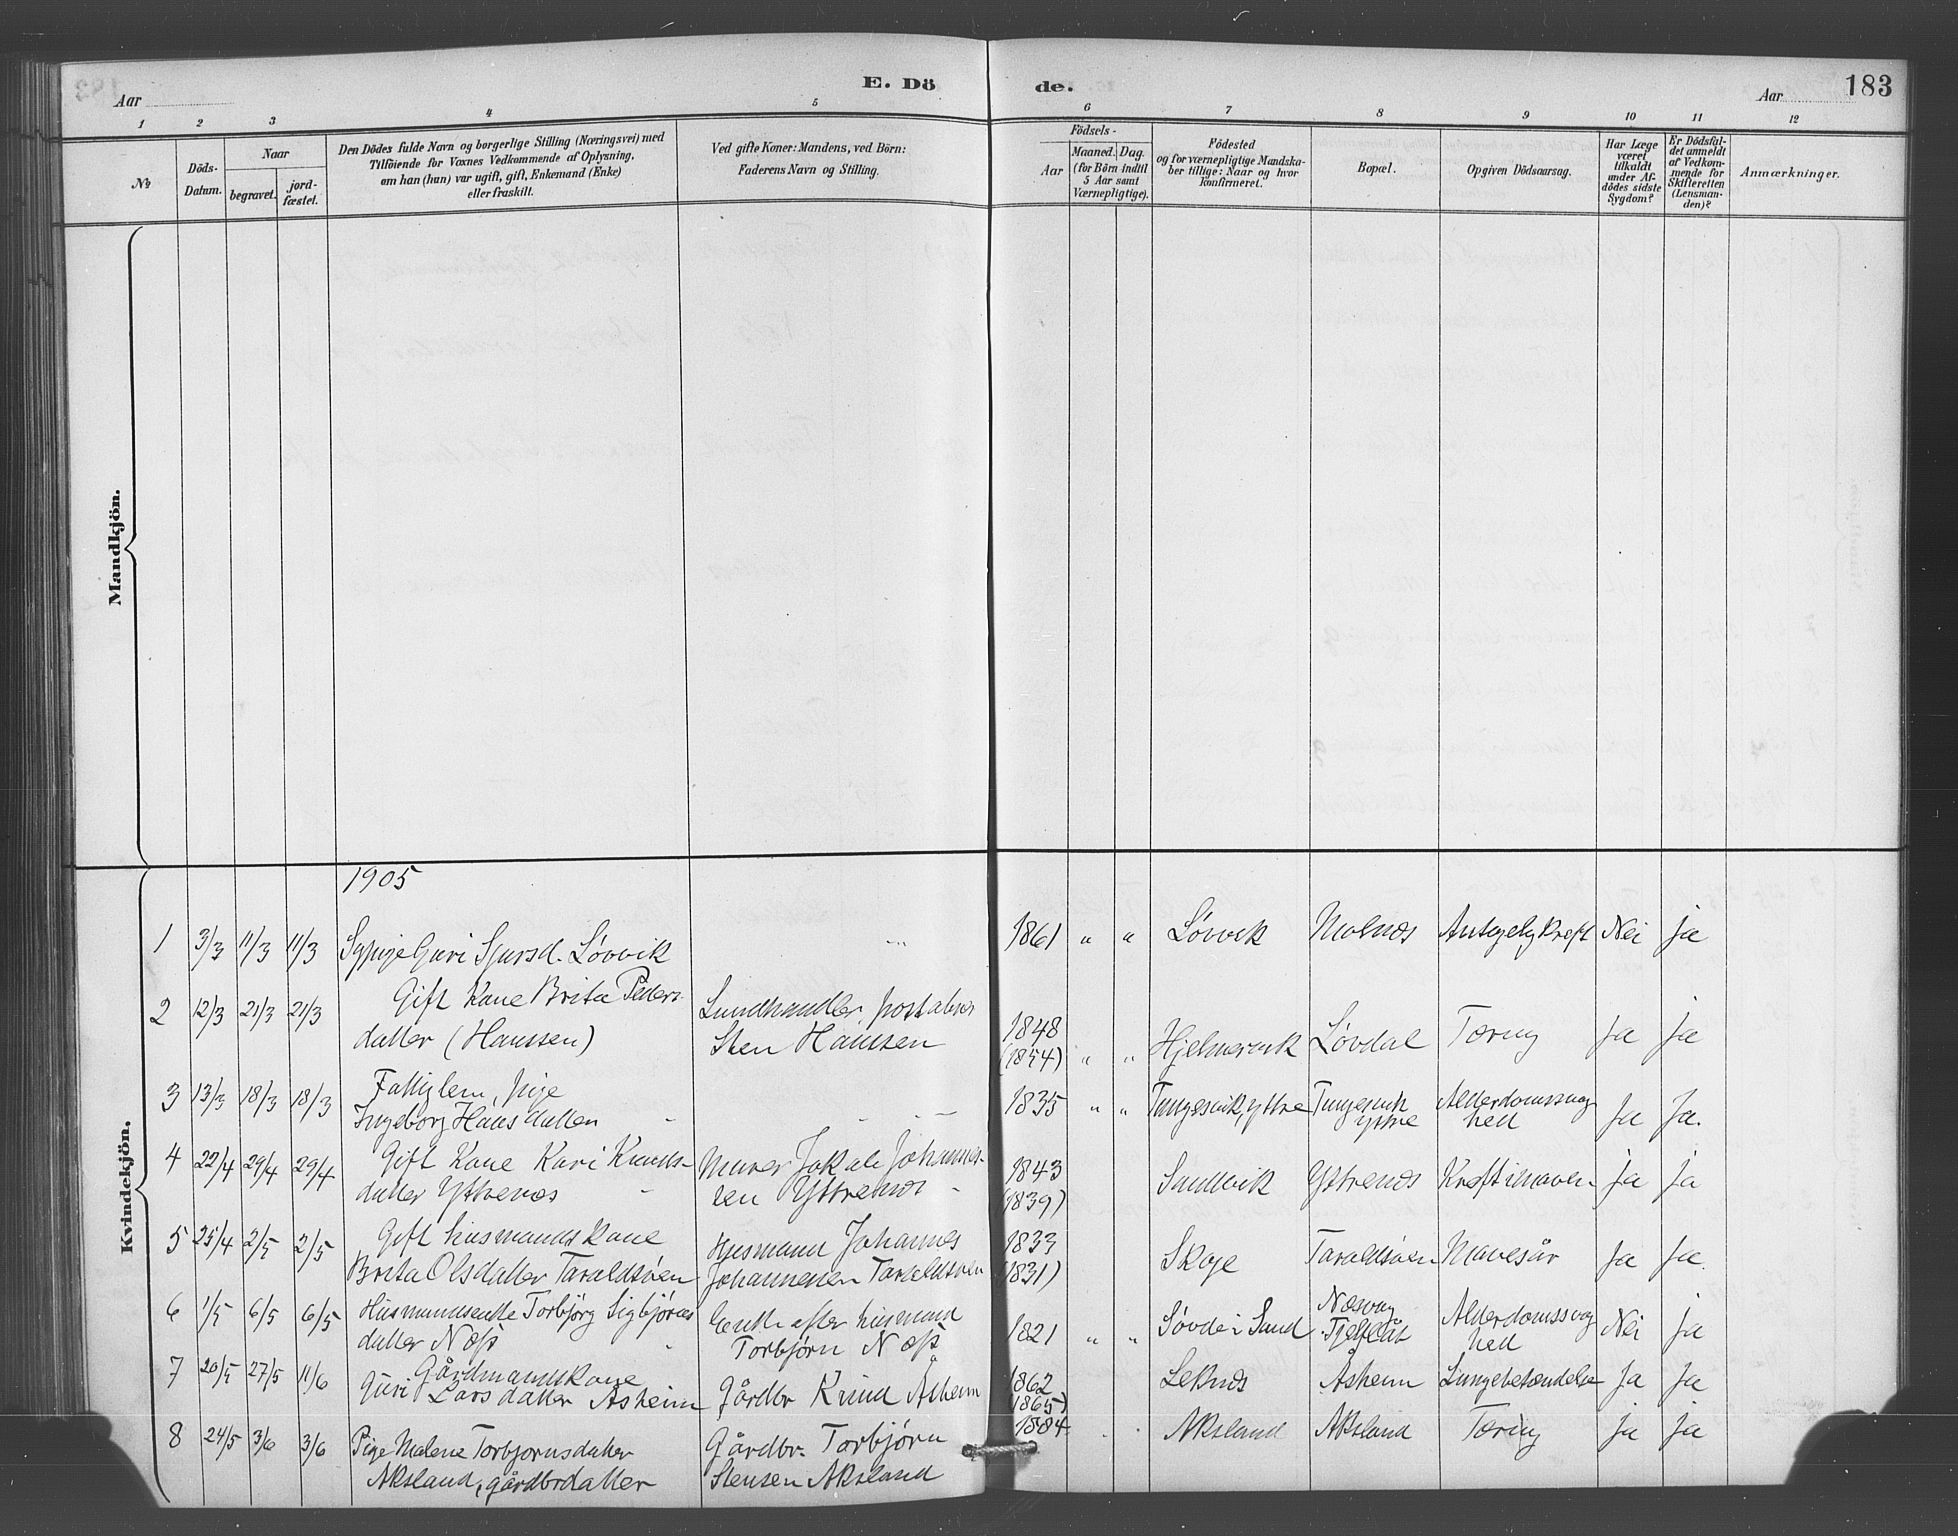 E. Dö de.
183
Aar
Aar
1 2 3 4 5 6 7 8 9 10 11 12
№
Döds-Datum.
Naar
begravet.
jord-fæstet.
Den Dödes fulde Navn og borgerlige Stilling (Næringsvei) med
Tilföiende for Voxnes Vedkommende af Oplysning,
om han (hun) var ugift, gift, Enkemand (Enke)
eller fraskilt.
Ved gifte Koner: Mandens, ved Börn:
Faderens Navn og Stilling.
Födsels-
Aar
Maaned. Dag.
(for Börn indtil
5 Aar samt
Værnepligtige).
Födested
og for værnepligtige Mandska-
ber tillige: Naar og hvor
konfirmeret.
Bopæl.
Opgiven Dödsaarsag.
Har Læge
været
tilkaldt
under Af-
dödes sidste
Sygdom?
Er Dödsfal-
det anmeldt
af Vedkom-
mende for
Skifteretten
(Lensman-
den)?
Anmærkninger.
Mandkjön.
Kvindekjön.
1905
1 3/3 11/3 11/3 Sypige Guri Sjursd. Løvvik 1861 " " Løvvik Molnæs Kreft Nei ja
2 12/3 21/3 21/3 Gift Kone Brita Peders- Landhandler, postaabner 1848
datter (Hanssen) Sten Hanssen (1854) " " Hjelmervik Løvdal Tæring Ja ja
3 13/3 18/3 18/3 Fattiglem, pige
Ingeborg Hansdatter - 1835 " " Tungesvik, yttre Tungesvik yttre Alderdomssvaghed Ja Ja.
4 22/4 29/4 29/4 Gift Kone Kari Knuds- Murer Jakob Johannes- 1843
datter Yttrenæs - sen Yttrenæs - (1839) Sandvik Yttrenæs Kreft i maven ja ja
5 25/4 2/5 2/5 Gift husmandskone Husmand Johannes 1833
Brita Olsdatter Taraldsøen Johannessen Taraldsøen (1831) Skoge Taraldsøen Mavesår Ja Ja.
6 1/5 6/5 6/5 Husmandsenke Torbjørg Sigbjørns Enke after husmand
datter Næss Torbjørn Næss 1821 " " Søvde i Sand Næsvåg Fjelberg Alderdomssvaghed Nei ja
7 20/5 27/5 11/6 Gårdmandskone
Guri Larsdatter Åsheim Gårdbr Knud Åsheim 1862 (1865) Leknæs Åsheim Lungebetændelse Ja Ja
8 24/5 3/6 3/6 Pige Malene Torbjornsdatter Gårdbr. Torbjørn 1884 Aksland Aksland Tæring ja ja
Aksland, gårdbrdatter Stensen Aksland